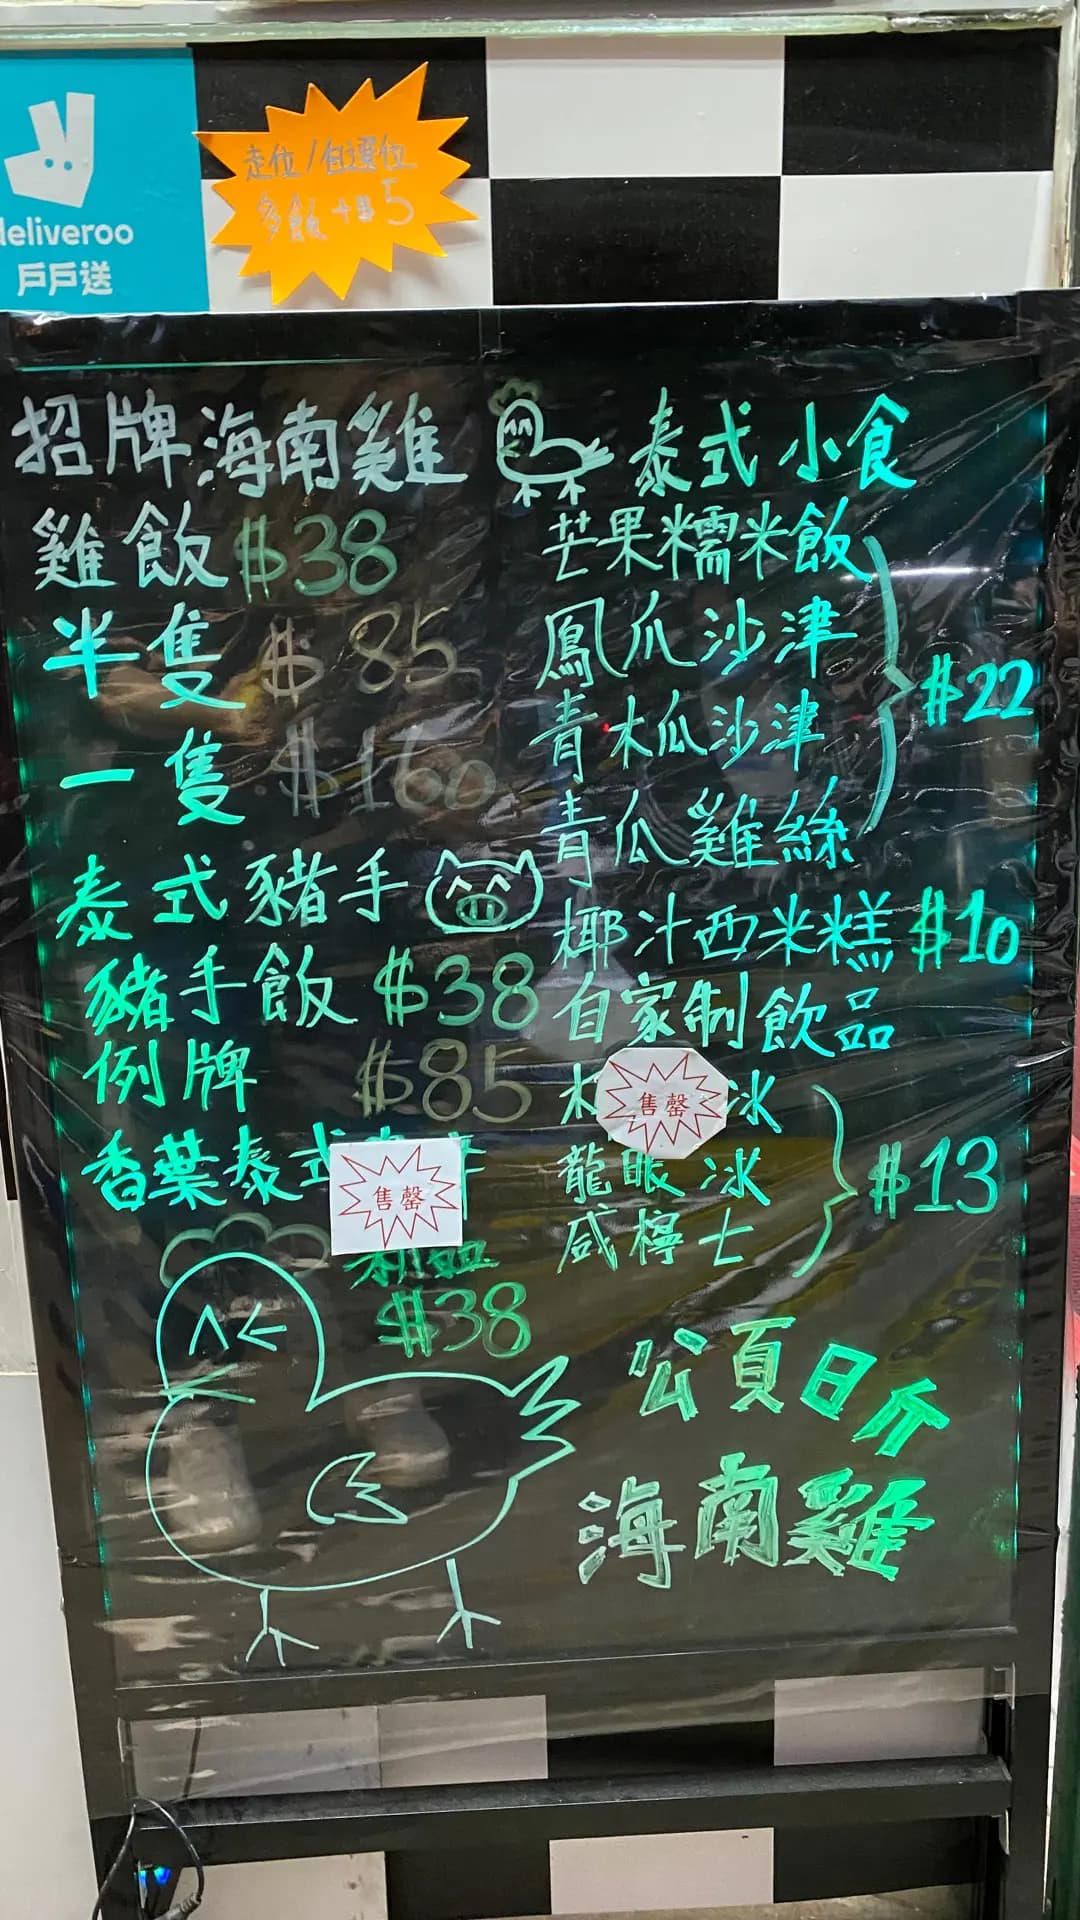 deliveroo
戶戶送
走位/自選位
多飯+$5
招牌海南雞
雞飯$38
半隻 $85
一隻 $160
泰式豬手
豬手飯 $38
例牌 $85
香葉泰式
售罄
$38
泰式小食
芒果糯米飯
鳳爪沙津
青木瓜沙津
青瓜雞絲
$22
椰汁西米糕 $10
自家制飲品
售罄
冰
龍眼冰
咸檸士
$13
公頁日介
海南雞